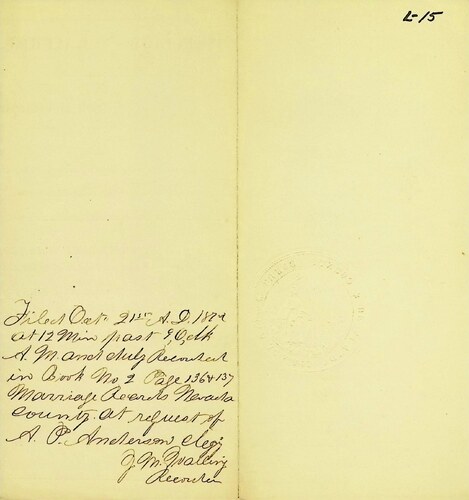 L-15
Filed Oct 21st A.D. 187
at 12 Min past 8 O,clk
A M and duly Recorded
in Book No 2 Page 136 & 137
Marriage Records Nevada
County. at request of
A. P. Anderson clegy
Recorder